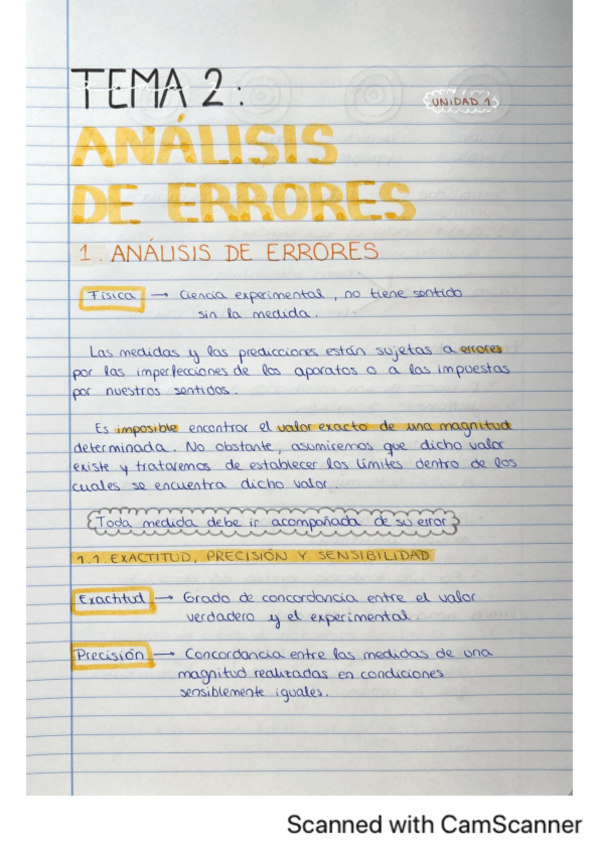 TEMA 2:
UNIDAD 1
ANÁLISIS
DE ERRORES
1. ANÁLISIS DE ERRORES
Física → Ciencia experimental, no tiene sentido
sin la medida.
Las medidas y las predicciones están sujetas a errores
por las imperfecciones de los aparatos o a las impuestas
por nuestros sentidos.
Es imposible encontrar el valor exacto de una magnitud
determinada. No obstante, asumiremos que dicho valor
existe y trataremos de establecer los límites dentro de los
cuales se encuentra dicho valor.
Toda medida debe ir acompañada de su error
1.1. EXACTITUD, PRECISIÓN Y SENSIBILIDAD
Exactitud → Grado de concordancia entre el valor
verdadero y el experimental.
Precisión → Concordancia entre las medidas de una
magnitud realizadas en condiciones
sensiblemente iguales.
Scanned with CamScanner